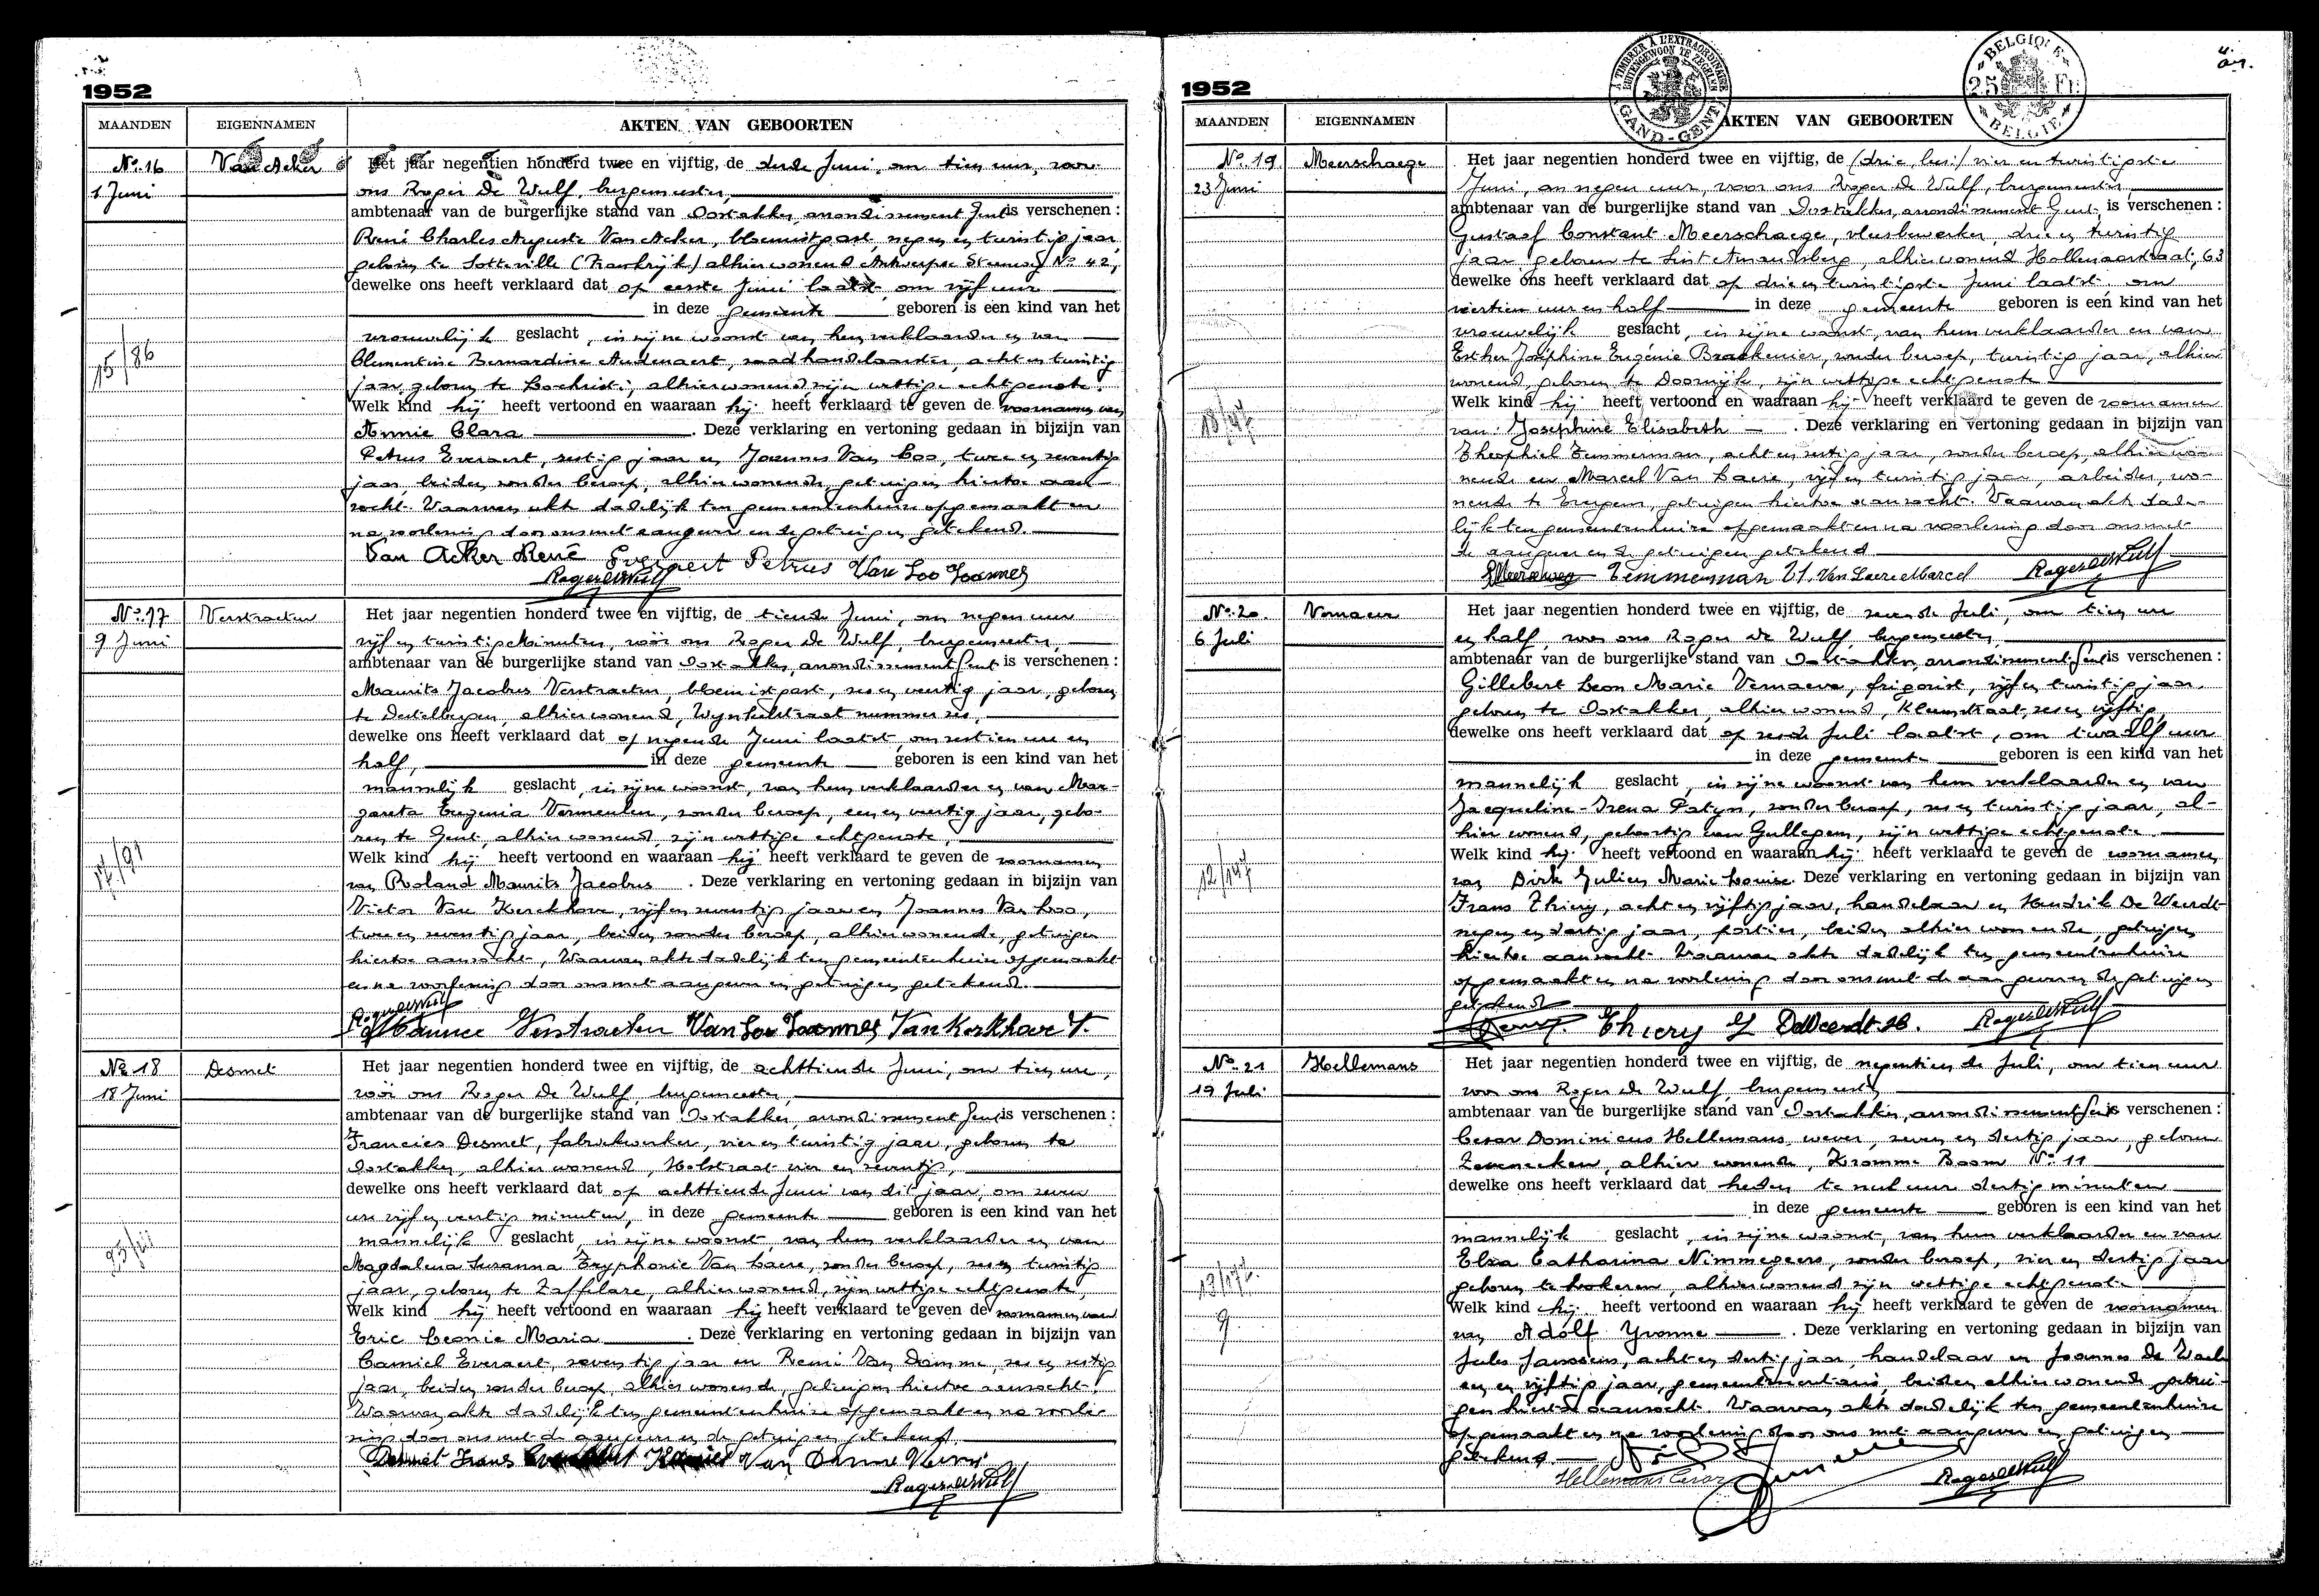 1952
MAANDEN EIGENNAMEN AKTEN VAN GEBOORTEN
No. 16 Van Acker Het jaar negentien honderd twee en vijftig, de derde Juni, om tien uur, voor
1 Juni ons Roger De Wulf, burgemeester,
ambtenaar van de burgerlijke stand van Oostakker, arrondissement Gent is verschenen :
René Charles Auguste Van Acker, bloemist past, negen en twintig jaar,
geboren te Sotteville (Frankrijk) alhier wonend Antwerpse Steenweg No 42,
dewelke ons heeft verklaard dat op eerste Juni laatst, om vijf uur
in deze gemeente geboren is een kind van het
vrouwelijk geslacht, in zijne woonst van hem verklaarder en van
15/86
Clementine Bernardine Audenaert, zaadhandelaarster, acht en twintig
jaar, geboren te Lochristi, alhier wonend, zijn wettige echtgenote.
Welk kind hij heeft vertoond en waaraan hij heeft verklaard te geven de voornamen van
Annie Clara . Deze verklaring en vertoning gedaan in bijzijn van
Petrus Everaert, zestig jaar en Joannes Van Loo, twee en zeventig
jaar, beiden zonder beroep, alhier wonende, getuigen hiertoe aan-
zocht. Waarvan akte dadelijk ten gemeentenhuize opgemaakt en
na voorlezing door ons met aangever en de getuigen getekend.
Van Acker René Everaert Petrus Van Loo Joannes
Roger De Wulf
No. 17 Verstraeten Het jaar negentien honderd twee en vijftig, de tiende Juni, om negen uur
9 Juni vijf en twintig minuten, vóór ons Roger De Wulf, burgemeester,
ambtenaar van de burgerlijke stand van Oostakker, arrondissement Gent is verschenen :
Maurits Jacobus Verstraeten, bloemist past, zes en veertig jaar, geboren
te Destelbergen, alhier wonend, Wynkelstraat nummer zes,
dewelke ons heeft verklaard dat op negende Juni laatst, om zestien ure en
half, in deze gemeente geboren is een kind van het
mannelijk geslacht, in zijne woonst, van hem verklaarder en van Mar-
gareta Eugenia Vermeulen, zonder beroep, een en veertig jaar, gebo-
ren te Gent, alhier wonend, zijn wettige echtgenote,
17/91
Welk kind hij heeft vertoond en waaraan hij heeft verklaard te geven de voornamen
van Roland Maurits Jacobus . Deze verklaring en vertoning gedaan in bijzijn van
Victor Van Kerckhove, vijf en zeventig jaar en Joannes Van Loo,
twee en zeventig jaar, beiden zonder beroep, alhier wonende, getuigen
hiertoe aanzocht, Waarvan akte dadelijk ten gemeentenhuize opgemaakt
en na voorlezing door ons met aangever en getuigen getekend.
Roger De Wulf
Maurice Verstraeten Van Loo Joannes Van Kerkhove V.
No 18 Desmet Het jaar negentien honderd twee en vijftig, de achttiende Juni, om tien ure,
18 Juni vóór ons Roger De Wulf, burgemeester,
ambtenaar van de burgerlijke stand van Oostakker, arrondissement Gent is verschenen :
Francies Desmet, fabriekwerker, vier en twintig jaar, geboren te
Oostakker, alhier wonend, Holstraat vier en zeventig,
dewelke ons heeft verklaard dat op achttiende Juni van dit jaar, om zeven
ure vijf en veertig minuten, in deze gemeente geboren is een kind van het
mannelijk geslacht, in zijne woonst, van hem verklaarder en van
Magdalena Susanna Tryphonie Van Laere, zonder beroep, zes en twintig
jaar, geboren te Zaffelare, alhier wonend, zijn wettige echtgenote,
Welk kind hij heeft vertoond en waaraan hij heeft verklaard te geven de voornamen van
Eric Leonie Maria . Deze verklaring en vertoning gedaan in bijzijn van
Camiel Everaert, zeventig jaar en Remi Van Damme, zes en zestig
jaar, beiden zonder beroep, alhier wonende, getuigen hiertoe aanzocht.
Waarvan akte dadelijk ten gemeentenhuize opgemaakt en na voorle-
zing door ons met de aangever en de getuigen getekend
Desmet Frans Van Damme Remi
Roger De Wulf
1952
A TIMBRER A L'EXTRAORDINAIRE
BUITENGEWOON TE ZEGELEN
GAND-GENT
BELGIQUE
25 Fr.
BELGIË
MAANDEN EIGENNAMEN AKTEN VAN GEBOORTEN
No. 19 Meerschaege Het jaar negentien honderd twee en vijftig, de (drie, lees:) vier en twintigste
23 Juni Juni, om negen uur, voor ons Roger De Wulf, burgemeester,
ambtenaar van de burgerlijke stand van Oostakker, arrondissement Gent, is verschenen :
Gustaaf Constant Meerschaege, vlasbewerker, drie en twintig
jaar, geboren te Sint Amandsberg, alhier wonend Hollenaarstraat, 63
dewelke ons heeft verklaard dat op drie en twintigste Juni laatst, om
veertien uur en half in deze gemeente geboren is een kind van het
vrouwelijk geslacht, in zijne woonst, van hem verklaarder en van
Esther Joséphine Eugénie Braekenier, zonder beroep, twintig jaar, alhier
wonend, geboren te Doornijk, zijn wettige echtgenote
Welk kind hij heeft vertoond en waaraan hij heeft verklaard te geven de voornamen
van: Josephine Elisabeth . Deze verklaring en vertoning gedaan in bijzijn van
Theophiel Temmerman, acht en zestig jaar, zonder beroep, alhier wo-
nende en Marcel Van Laere, vijf en twintig jaar, arbeider, wo-
nende te Evergem, getuigen hiertoe aanzocht. Waarvan akte dade-
lijk ten gemeentenhuize opgemaakt en na voorlezing door ons met
de aangever en de getuigen getekend
Meerschaege Temmerman Th. Van Laere Marcel Roger De Wulf
No. 20 Vernaeve Het jaar negentien honderd twee en vijftig, de zevende Juli, om tien ure
6 Juli en half, voor ons Roger De Wulf, burgemeester,
ambtenaar van de burgerlijke stand van Oostakker, arrondissement Gent is verschenen :
Gillebert Leon Marie Vernaeve, frigorist, vijf en twintig jaar,
geboren te Oostakker, alhier wonend, Kleemstraat, zes en vijftig
dewelke ons heeft verklaard dat op zesde Juli laatst, om twaalf uur
in deze gemeente geboren is een kind van het
mannelijk geslacht, in zijne woonst van hem verklaarder en van
Jacqueline-Irena Patyn, zonder beroep, zes en twintig jaar, al-
hier wonend, geboortig van Gullegem, zijn wettige echtgenote.
Welk kind hij heeft vertoond en waaraan hij heeft verklaard te geven de voornamen
van Dirk Julien Marie Louise. Deze verklaring en vertoning gedaan in bijzijn van
Frans Thiery, acht en vijftig jaar, handelaar en Hendrik De Weerdt
negen en dertig jaar, portier, beiden alhier wonende, getuigen
hiertoe aanzocht. Waarvan akte dadelijk ten gemeentenhuize
opgemaakt en na voorlezing door ons met de aangever en de getuigen
getekend
Thiery F DeWeerdt H. Roger De Wulf
No. 21 Hellemans Het jaar negentien honderd twee en vijftig, de negentiende Juli, om tien uur
19 Juli voor ons Roger De Wulf, burgemeester
ambtenaar van de burgerlijke stand van Oostakker, arrondissement Gent is verschenen :
Cesar Dominicus Hellemans, wever, zeven en dertig jaar, geboren
Zeveneeken, alhier wonende, Kromme Boom No. 11
dewelke ons heeft verklaard dat heden te nul uur dertig minuten
in deze gemeente geboren is een kind van het
mannelijk geslacht, in zijne woonst, van hem verklaarder en van
Elza Catharina Nimmegeers, zonder beroep, vier en dertig jaar
geboren te Lokeren, alhier wonend zijn wettige echtgenote.
Welk kind hij heeft vertoond en waaraan hij heeft verklaard te geven de voornamen
van Adolf Yvonne . Deze verklaring en vertoning gedaan in bijzijn van
Jules Janssens, acht en dertig jaar, handelaar en Joannes De Waele
een en vijftig jaar, gemeentesecretaris, beiden alhier wonende getui-
gen hiertoe aanzocht. Waarvan akte dadelijk ten gemeentenhuize
opgemaakt en na voorlezing door ons met aangever en getuigen
getekend
Hellemans Cesar Roger De Wulf